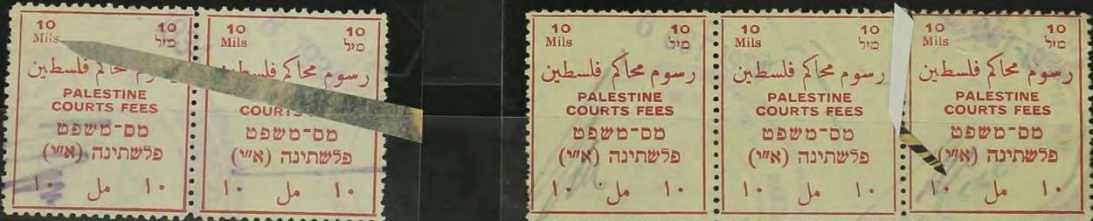 10 10
Mils מיל
محاكم فلسطين
PALESTINE
COURTS FEES
מס־משפט
פלשתינה (א״י)
١٠ مل ١٠
10 10
Mils מיל
رسوم محاكم
COURTS FEES
מס־משפט
פלשתינה (א״י)
١٠ مل ١٠
10 10
Mils מיל
رسوم محاكم فلسطين
PALESTINE
COURTS FEES
מס־משפט
פלשתינה (א״י)
١٠ مل ١٠
10 10
Mils מיל
رسوم محاكم فلسطين
PALESTINE
COURTS FEES
מס־משפט
פלשתינה (א״י)
١٠ مل ١٠
10 10
Mils מיל
رسوم محاكم فلسطين
PALESTINE
COURTS FEES
מס־משפט
פלשתינה (א״י)
١٠ مل ١٠